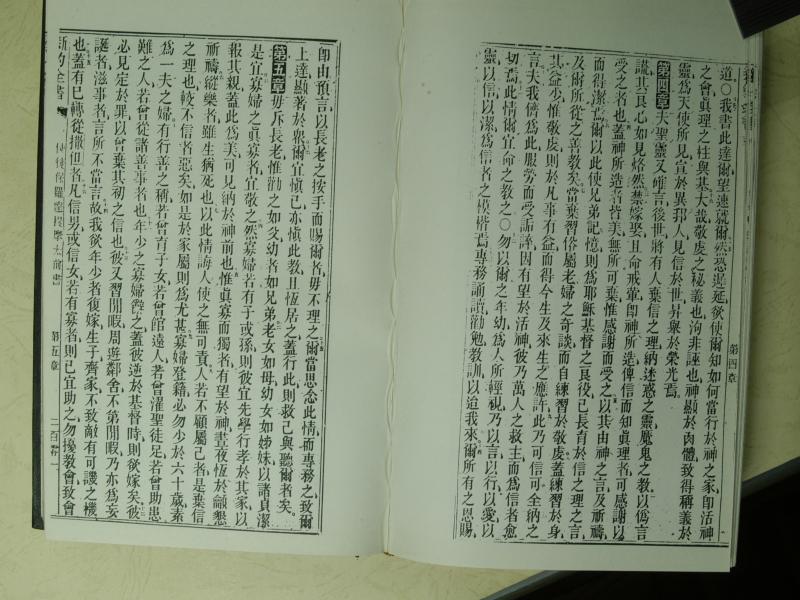 道〇我書此達爾望速就爾然恐遲延欲使爾知如何當行於神之家即活神
之會眞理之柱與基大哉敬虔之秘義也洵非誣也神顯於肉體致得稱義於
靈爲天使所見宣於異邦人見信於世昇舉於榮光焉
第四章夫聖靈又確言後世將有人棄信之理納迷惑之靈魔鬼之教以僞言
謊其良心如見烙然禁嫁娶且命戒葷即神所造俾信而知眞理者可感謝以
受之者也蓋神所造者皆美無所可棄惟感謝而受之以其由神之言及祈禱
而得潔焉爾以此使兄弟記憶則爲耶穌基督之良役已長育於信之理之言
及爾所從之善教矣當棄習俗屬老婦之奇談而自練習於敬虔蓋練習於身
其益少惟敬虔則於凡事有益而得今生及來生之應許此乃可信可全納之
言夫我儕爲此服勞而受詬誶因有望於活神彼乃萬人之救主而爲信者愈
切焉此情爾宜命之教之〇勿以爾之年幼爲人所輕視乃以言以行以愛以
靈以信以潔爲信者之模楷焉專務誦讀勸勉教訓以迨我來爾所有之恩賜
第四章
即由預言以長老之按手而賜爾者毋不理之爾當思念此情而專務之致爾
上達顯著於衆爾宜愼己亦愼此教且恆居之蓋行此則救己與聽爾者矣
第五章毋斥長老惟勸之如父幼者如兄弟老女如母幼女如姊妹以諸貞潔
是宜寡婦之眞寡者宜敬之然寡婦若有子或孫則彼宜先學行孝於其家以
報其親蓋此爲美可見納於神前也惟眞寡而獨者有望於神晝夜恆於籲懇
祈禱縱樂者雖生猶死也以此情誨人使之無可責人若不顧屬己者是棄信
之理也較不信者惡矣如是於家屬則爲尤甚寡婦登籍必勿少於六十歲素
爲一夫之婦有行善之稱者若曾育子女若曾館遠人若曾濯聖徒足若曾助患
難之人若曾從諸善事者也年少之寡婦辭之蓋彼逆於基督時則欲嫁矣彼
必見定於罪以曾棄其初之信也彼又習閒暇周遊鄰舍不第閒暇乃亦爲妄
誕者滋事者言所不當言者故我欲年少者復嫁生子齊家不致敵有可譏之機
也蓋有已轉從撒但者凡信男或信女若有寡者則己宜助之勿擾教會致會
新約全書
使徒保羅達提摩太前書
第五章